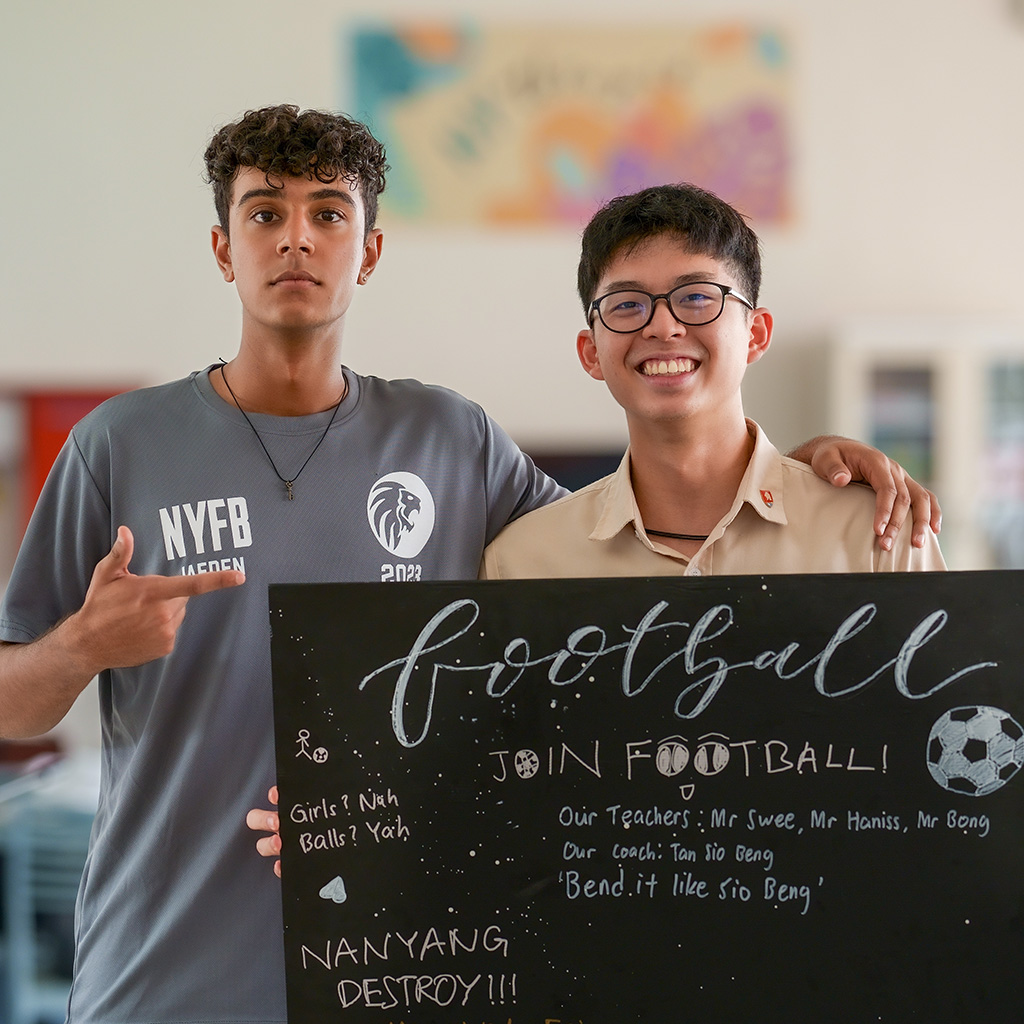 NYFB
JAEDEN
2023
football
JOIN FOOTBALL!
Girls? Nah
Balls? Yah
Our Teachers: Mr Swee, Mr Haniss, Mr Bong
Our coach: Tan Sio Beng
'Bend it like Sio Beng'
NANYANG
DESTROY!!!